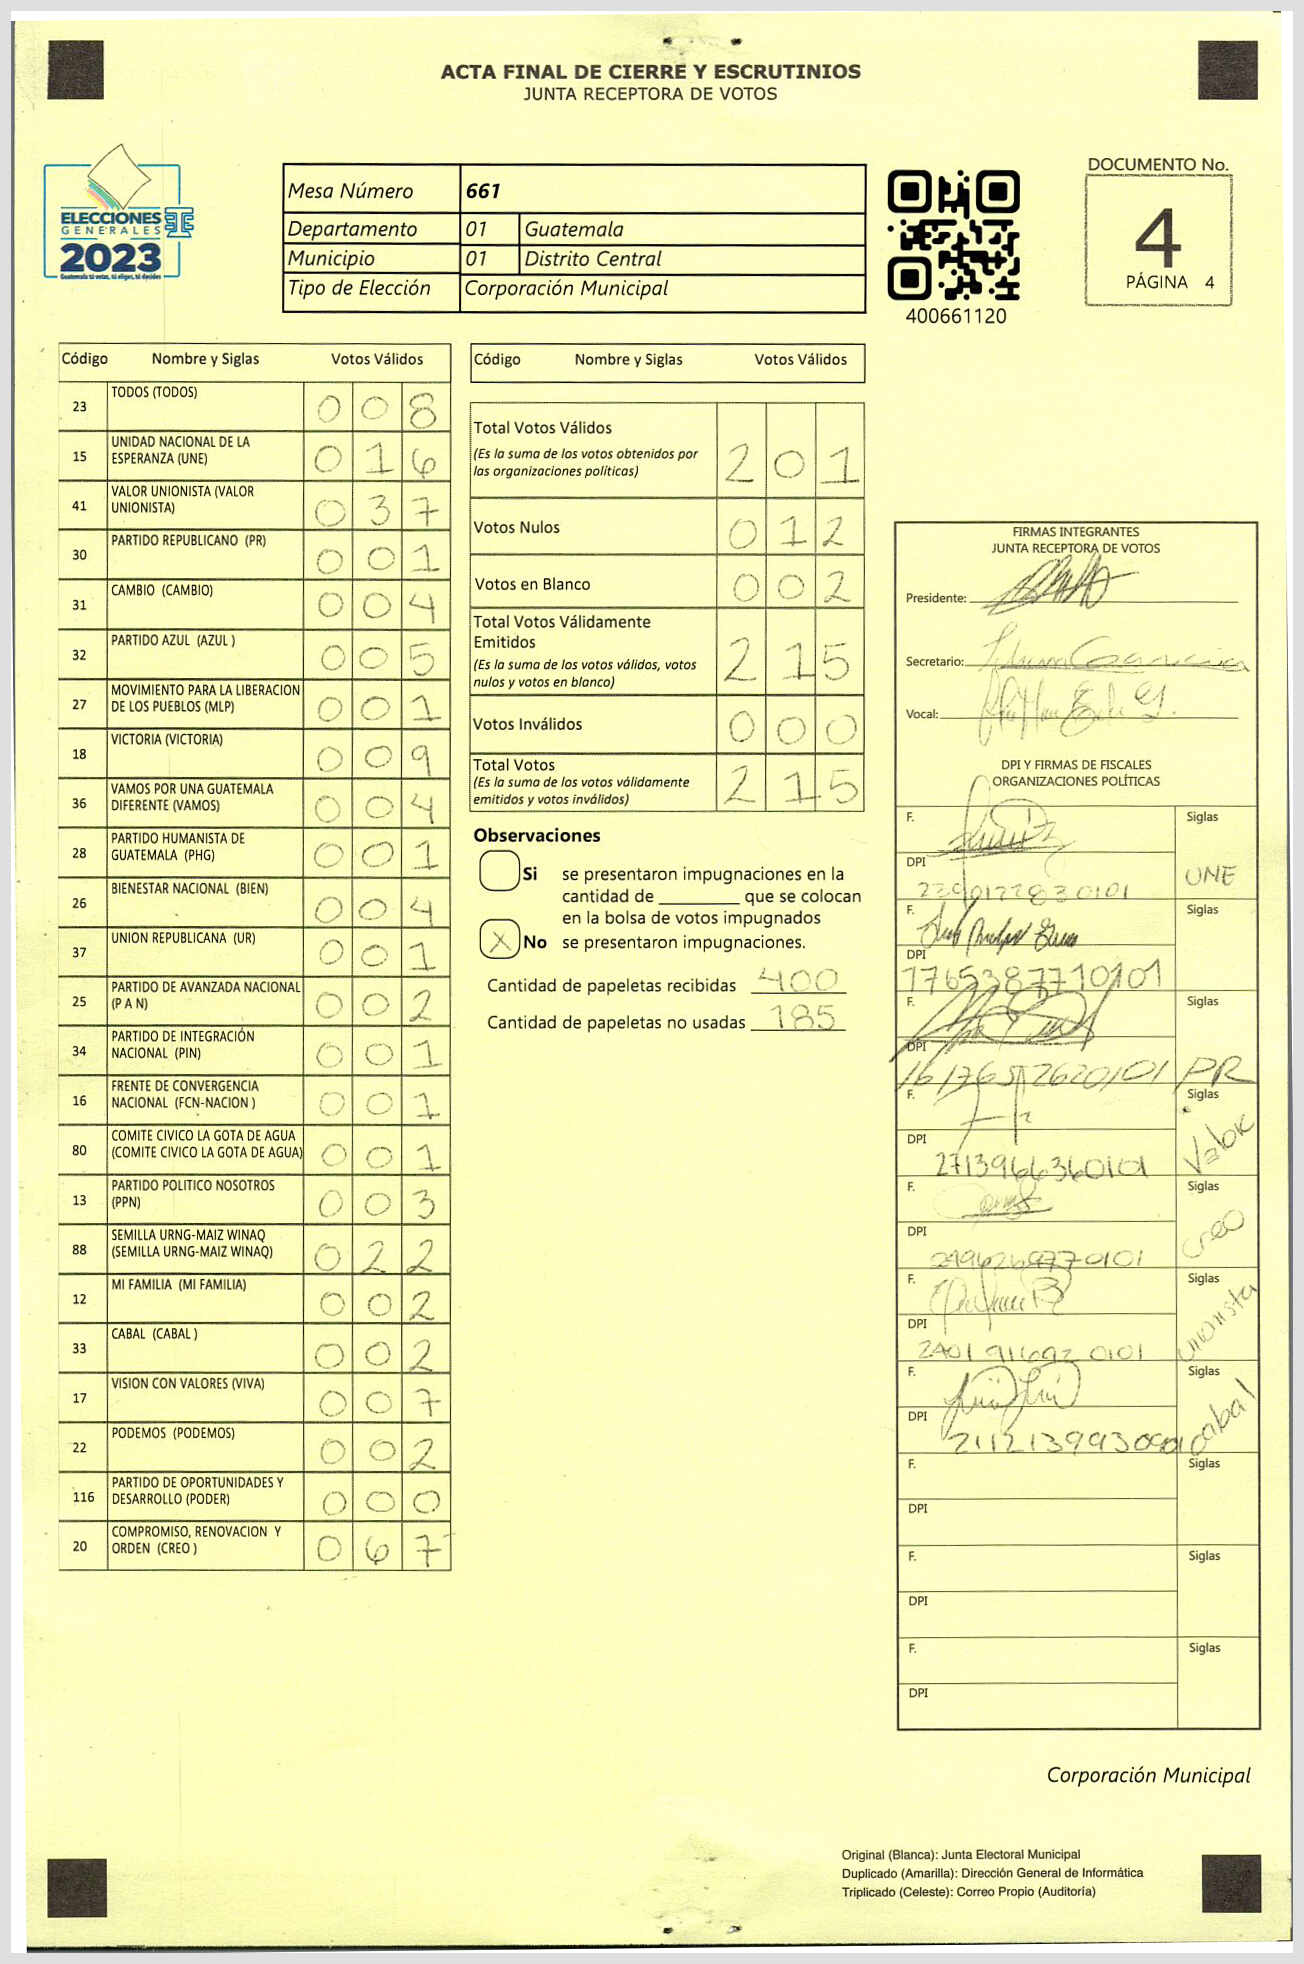 ACTA FINAL DE CIERRE Y ESCRUTINIOS
JUNTA RECEPTORA DE VOTOS
ELECCIONES
GENERALES
2023
Guatemala tú votas, tú eliges, tú decides
Mesa Número 661
Departamento 01 Guatemala
Municipio 01 Distrito Central
Tipo de Elección Corporación Municipal
400661120
DOCUMENTO No.
4
PÁGINA 4
Código Nombre y Siglas Votos Válidos
23 TODOS (TODOS) 0 0 8
15 UNIDAD NACIONAL DE LA ESPERANZA (UNE) 0 1 6
41 VALOR UNIONISTA (VALOR UNIONISTA) 0 3 7
30 PARTIDO REPUBLICANO (PR) 0 0 1
31 CAMBIO (CAMBIO) 0 0 4
32 PARTIDO AZUL (AZUL ) 0 0 5
27 MOVIMIENTO PARA LA LIBERACION DE LOS PUEBLOS (MLP) 0 0 1
18 VICTORIA (VICTORIA) 0 0 9
36 VAMOS POR UNA GUATEMALA DIFERENTE (VAMOS) 0 0 4
28 PARTIDO HUMANISTA DE GUATEMALA (PHG) 0 0 1
26 BIENESTAR NACIONAL (BIEN) 0 0 4
37 UNION REPUBLICANA (UR) 0 0 1
25 PARTIDO DE AVANZADA NACIONAL (P A N) 0 0 2
34 PARTIDO DE INTEGRACIÓN NACIONAL (PIN) 0 0 1
16 FRENTE DE CONVERGENCIA NACIONAL (FCN-NACION ) 0 0 1
80 COMITE CIVICO LA GOTA DE AGUA (COMITE CIVICO LA GOTA DE AGUA) 0 0 1
13 PARTIDO POLITICO NOSOTROS (PPN) 0 0 3
88 SEMILLA URNG-MAIZ WINAQ (SEMILLA URNG-MAIZ WINAQ) 0 2 2
12 MI FAMILIA (MI FAMILIA) 0 0 2
33 CABAL (CABAL ) 0 0 2
17 VISION CON VALORES (VIVA) 0 0 7
22 PODEMOS (PODEMOS) 0 0 2
116 PARTIDO DE OPORTUNIDADES Y DESARROLLO (PODER) 0 0 0
20 COMPROMISO, RENOVACION Y ORDEN (CREO ) 0 6 7
Código Nombre y Siglas Votos Válidos
Total Votos Válidos 2 0 1
(Es la suma de los votos obtenidos por
las organizaciones políticas)
Votos Nulos 0 1 2
Votos en Blanco 0 0 2
Total Votos Válidamente
Emitidos 2 1 5
(Es la suma de los votos válidos, votos
nulos y votos en blanco)
Votos Inválidos 0 0 0
Total Votos 2 1 5
(Es la suma de los votos válidamente
emitidos y votos inválidos)
Observaciones
Si se presentaron impugnaciones en la
cantidad de ________ que se colocan
en la bolsa de votos impugnados
X No se presentaron impugnaciones.
Cantidad de papeletas recibidas 400
Cantidad de papeletas no usadas 185
FIRMAS INTEGRANTES
JUNTA RECEPTORA DE VOTOS
Presidente:
Secretario:
Vocal:
DPI Y FIRMAS DE FISCALES
ORGANIZACIONES POLÍTICAS
F. Siglas
DPI 2390122830101 UNE
F. Siglas
DPI 1765387710101
F. Siglas
DPI PR
F. Siglas
DPI 2713966360101 Valor
F. Siglas
DPI creo
F. Siglas
DPI unionista
F. Siglas
DPI cabal
F. Siglas
DPI
F. Siglas
DPI
F. Siglas
DPI
Corporación Municipal
Original (Blanca): Junta Electoral Municipal
Duplicado (Amarilla): Dirección General de Informática
Triplicado (Celeste): Correo Propio (Auditoría)